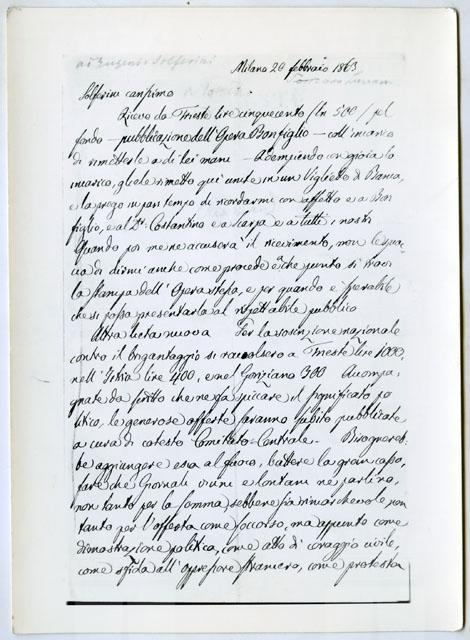 ad Eugenio Solferini
Milano 20 febbraio 1863
Solferini carissimo
Ricevo da Trieste lire cinquecento / ln 500 / pel
fondo — pubblicazione dell'Opera Bonfiglio — coll'incarico
di rimetterle a di lei mani — Adempiendo con gioia lo
incarico, gliele rimetto qui unite in un Viglietto di Banca,
e la prego in pari tempo di ricordarmi con affetto e a Bon
figlio, e al Dr. Costantino e a Scarpa e a tutti i nostri
Quando poi me ne accuserà il ricevimento, non le spiac
cia di dirmi anche come procede e a che punto si trovi
la stampa dell'Opera stessa, e per quando è sperabile
che si possa presentarla al rispettabile pubblico
Altra lieta nuova Per la soscrizione nazionale
contro il brigantaggio si raccolsero a Trieste lire 1000,
nell'Istria lire 400, e nel Goriziano 300 Accompa,
gnate da scritto che ne fa spiccare il significato po
litico, le generose offerte saranno subito pubblicate
a cura di cotesto Comitato Centrale. Bisognereb,
be aggiungere esca al fuoco, battere la gran cassa,
fare che Giornali vicini e lontani ne parlino,
non tanto per la somma, sebbene sia rimarchevole, non
tanto per l'offerta come soccorso, ma appunto come
dimostrazione politica, come atto di coraggio civile,
come sfida all'oppressore straniero, come protesta